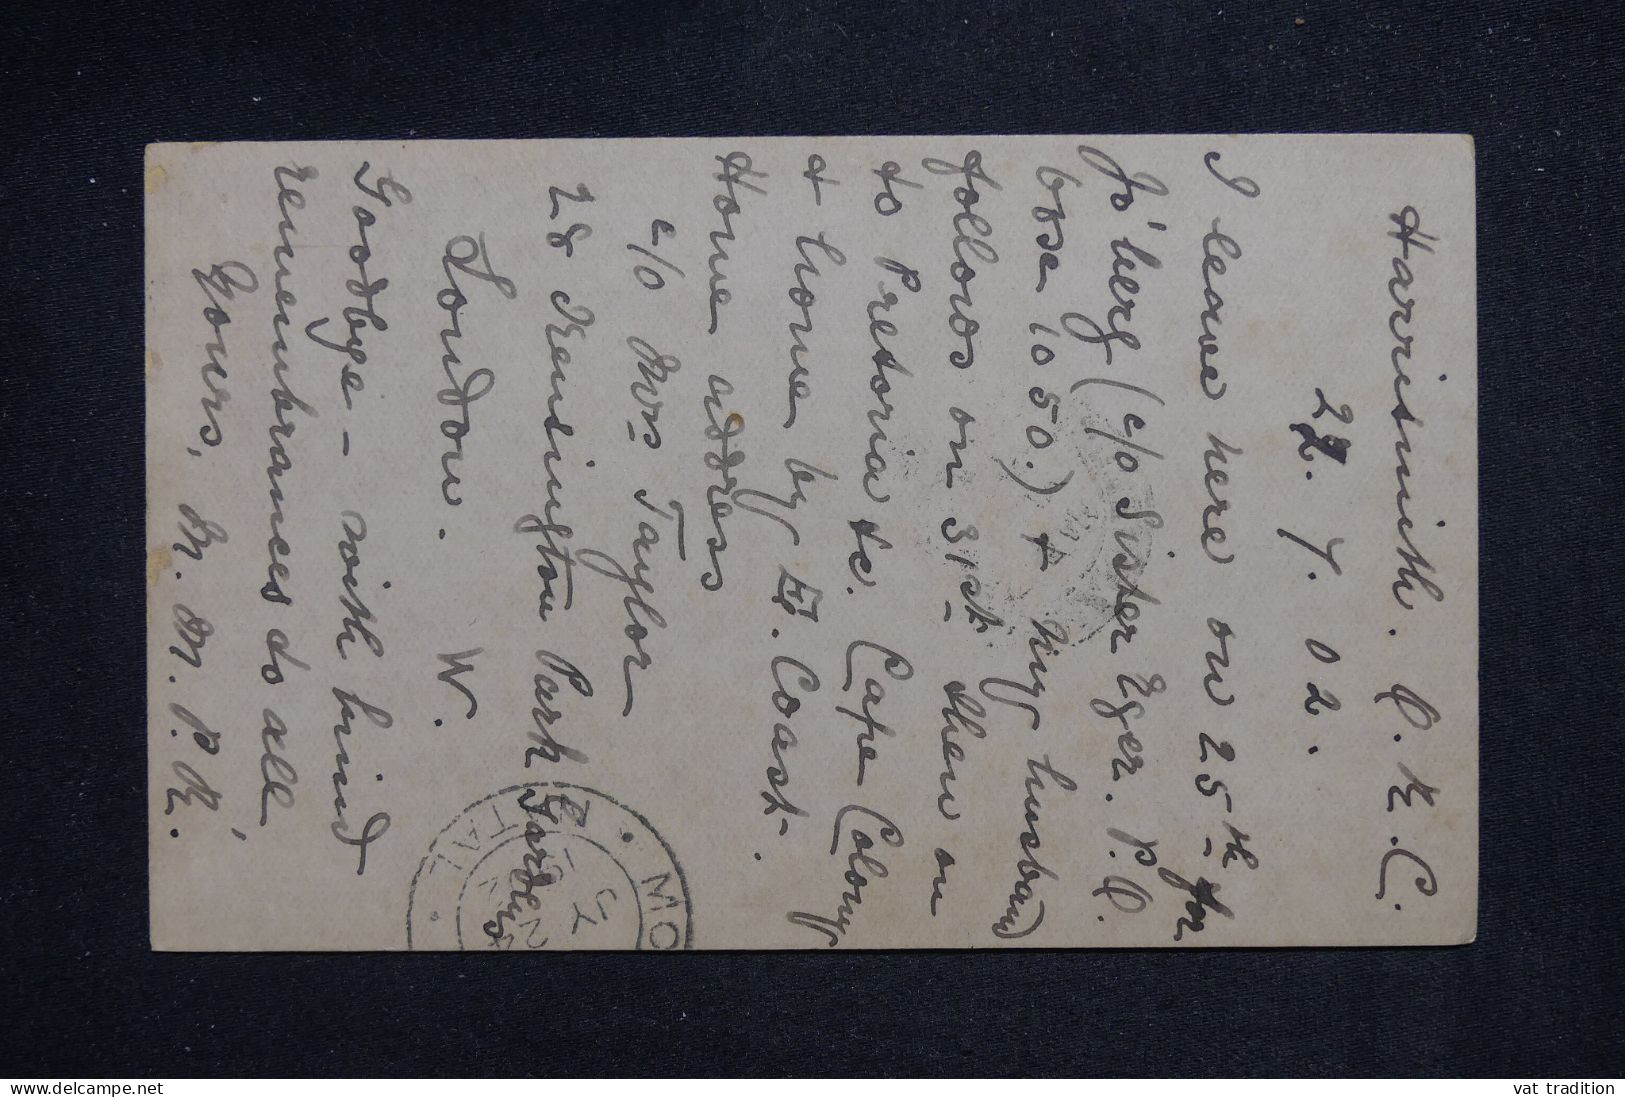 Harrismith. O. R. C.
22. 7. 02.
I leave here on 25th for
Jo'berg (c/o Sister Eger. P.O.
box 1050.) + my husband
follows on 31st then on
to Pretoria &c. Cape Colony
+ home by E. Coast.
Home address
c/o Mrs Taylor
28 Kensington Park Gardens
London. W.
Goodbye – with kind
remembrances to all,
Yours, M. M. P. R.
MO
TAL
vat tradition